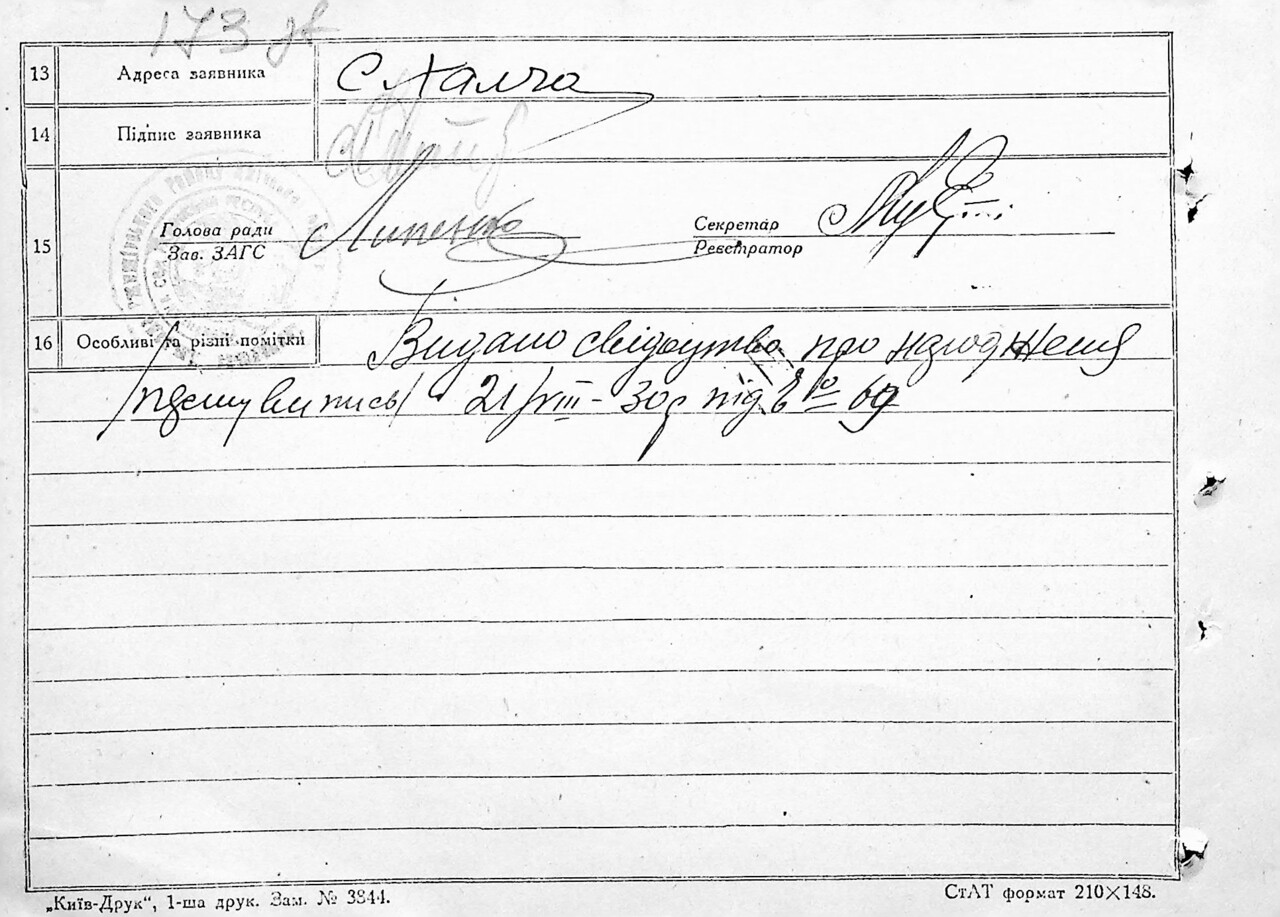 173 зв
13 Адреса заявника С Халча
14 Підпис заявника
15 Голова ради Зав. ЗАГС Липенко Секретар Реєстратор
16 Особливі та різні помітки Видано свідоцтво про народження
21/VIII-30р під № 69
„Київ-Друк“, 1-ша друк. Зам. № 3344. СтАТ формат 210×148.